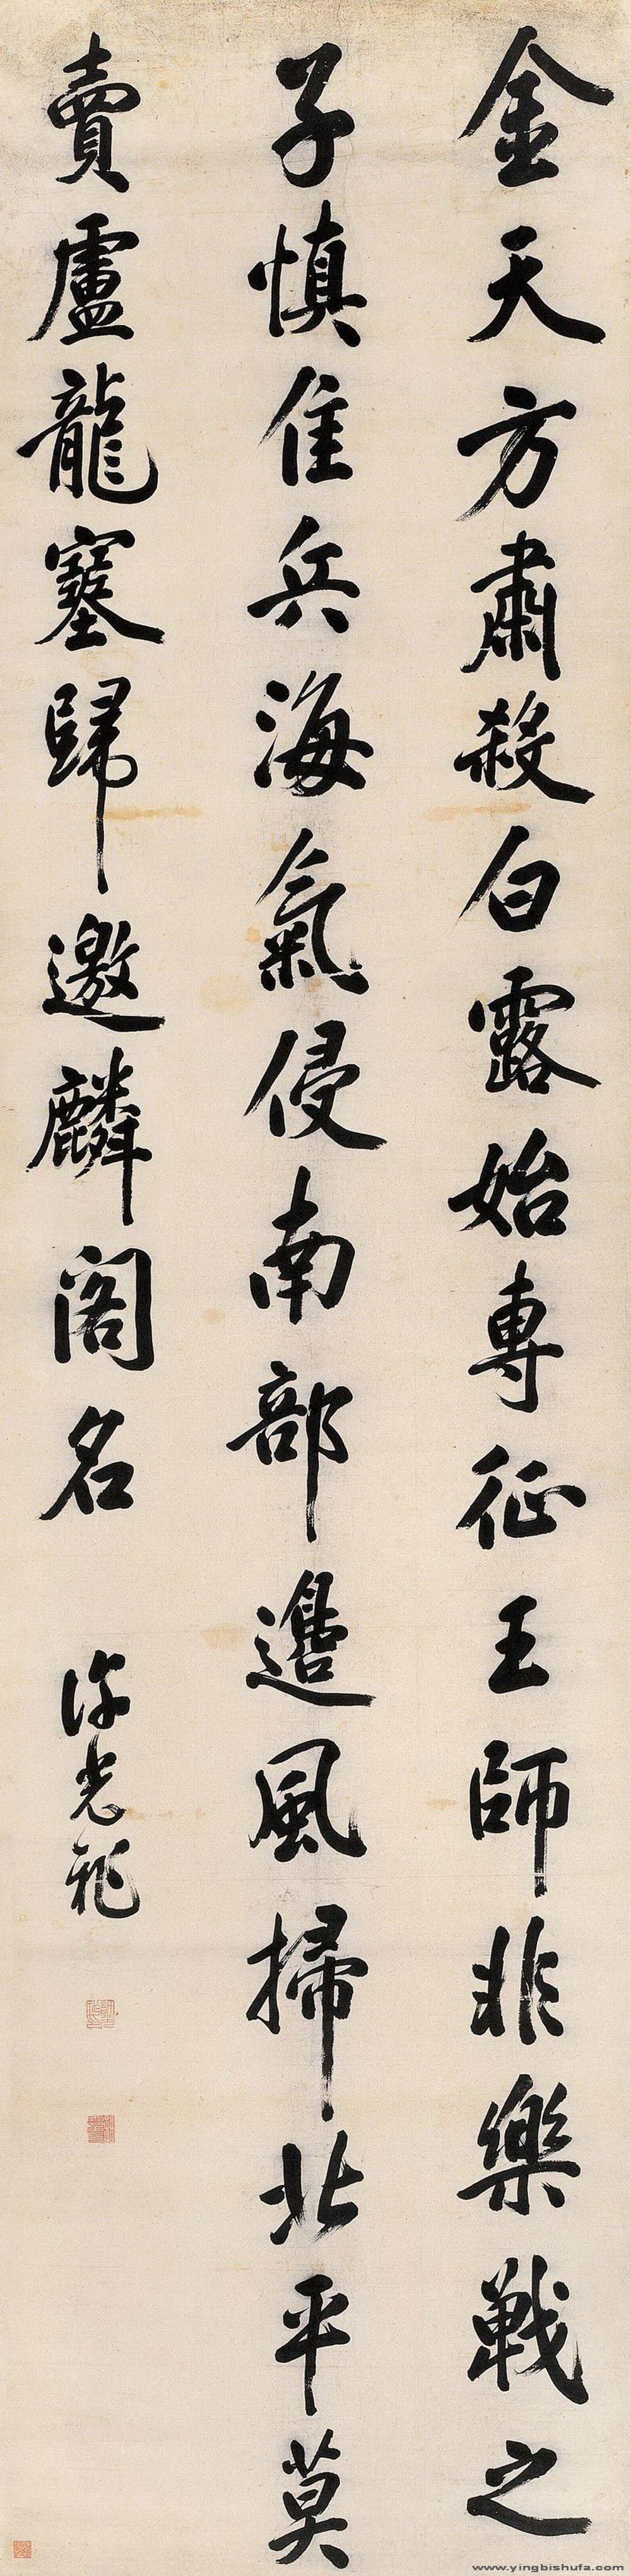 金天方肅殺白露始專征王師非樂戰之
子慎佳兵海氣侵南部邊風掃北平莫
賣盧龍塞歸邀麟閣名
許光祚
www.yingbishufa.com